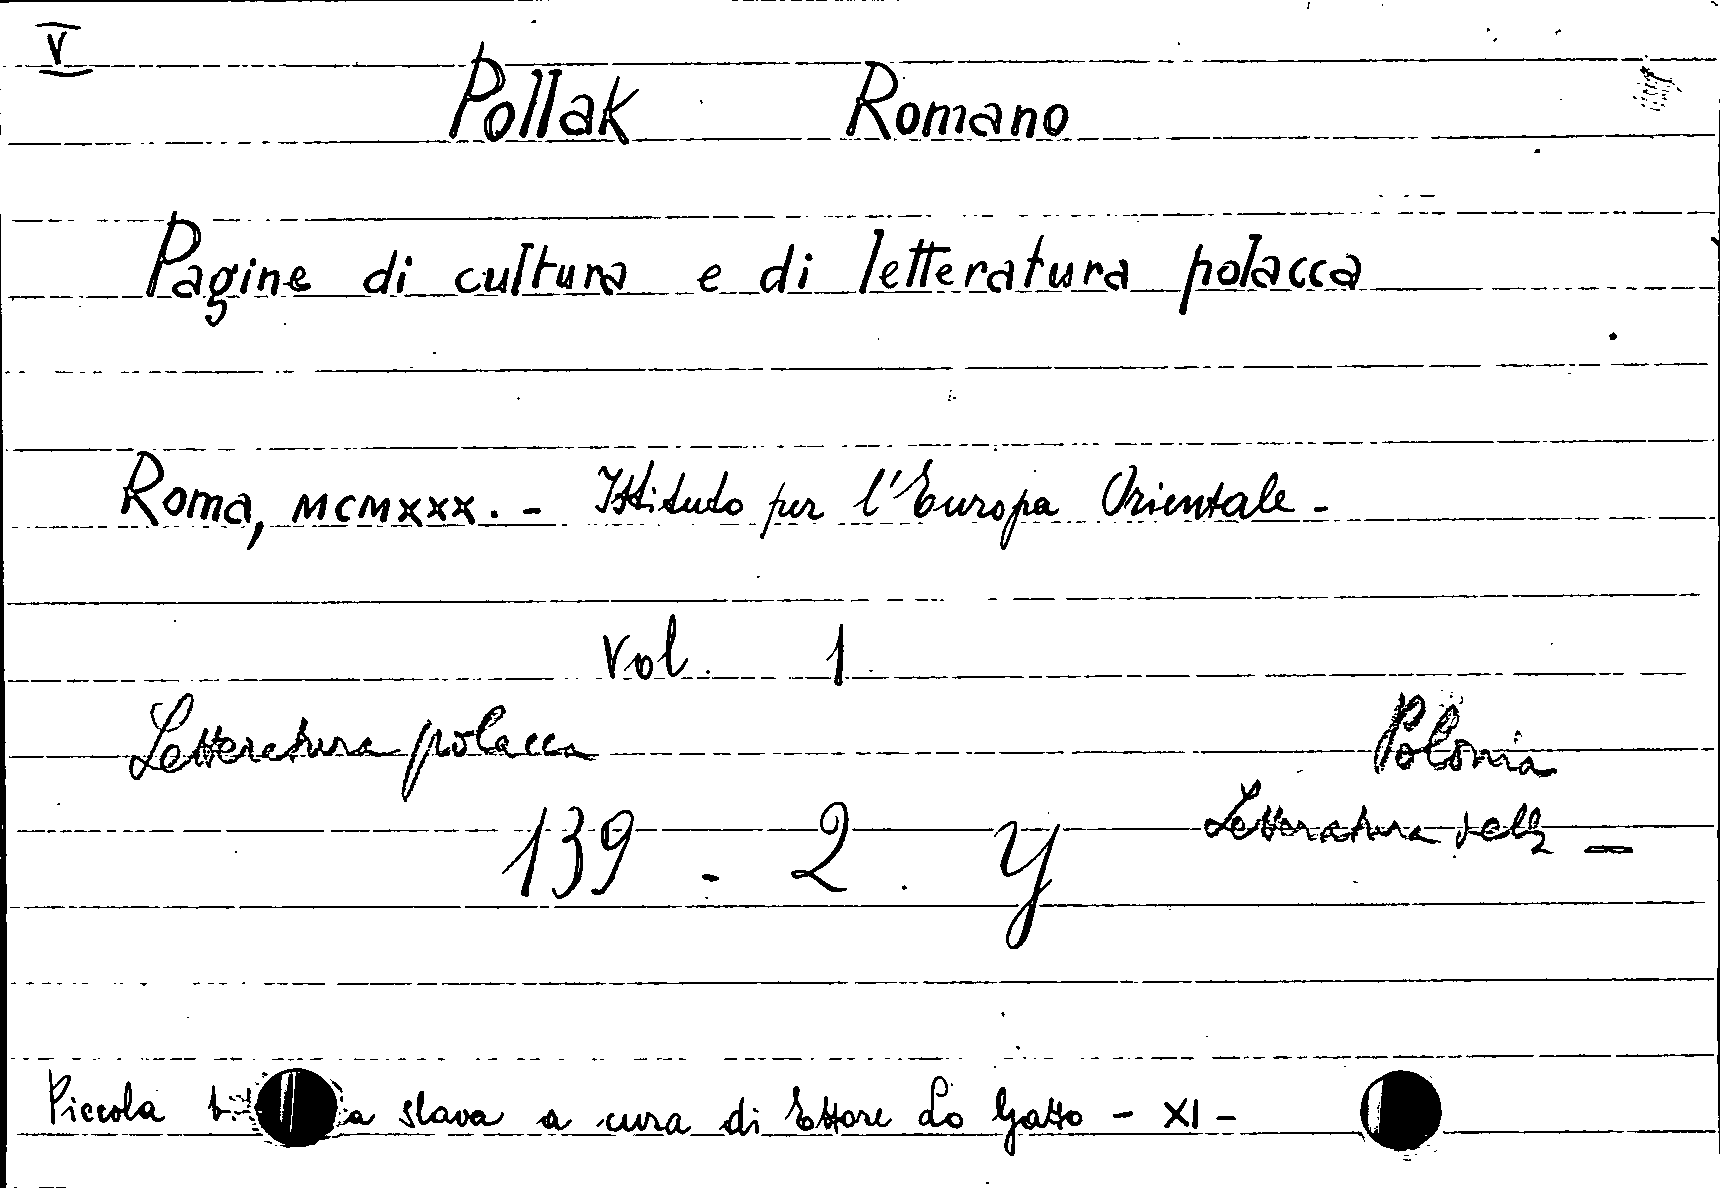 V
Pollak Romano
Pagine di cultura e di letteratura polacca
Roma, MCMXXX. - Istituto per l'Europa Orientale -
Vol. 1
Letteratura polacca
Polonia
Letteratura della -
139 - 2. Y
Piccola a slava a cura di Ettore Lo Gatto - XI -